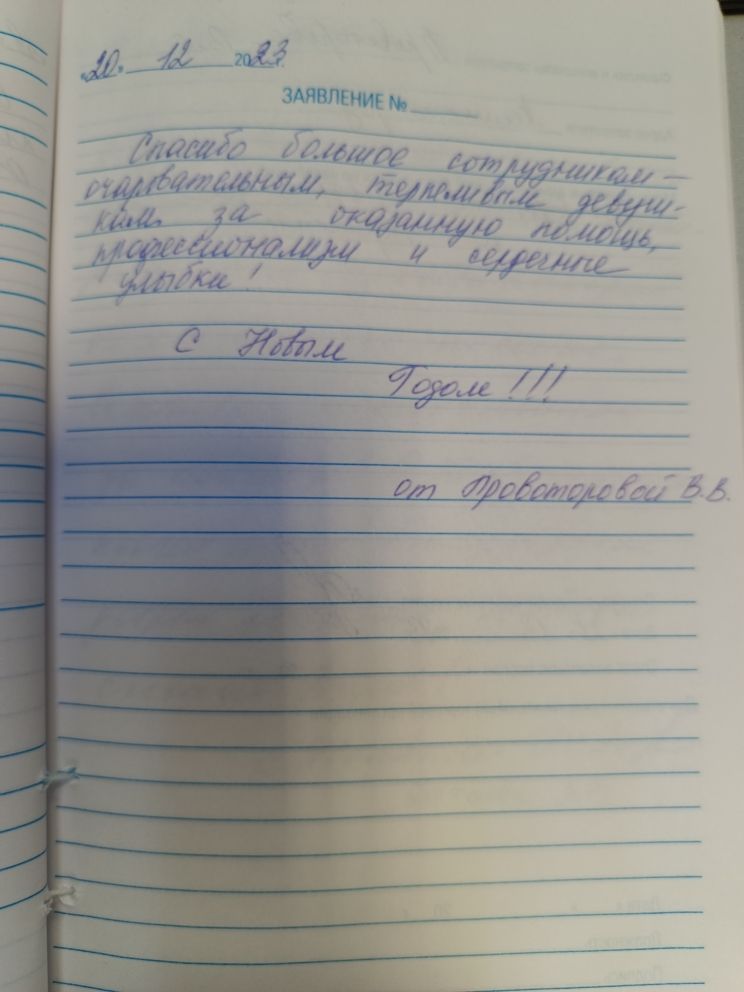 «20» 12 2023 г.
ЗАЯВЛЕНИЕ №
Спасибо большое сотрудникам –
очаровательным, терпеливым девуш-
кам за оказанную помощь,
профессионализм и сердечные
улыбки!
С Новым
Годом!!!
от Провоторовой В.В.